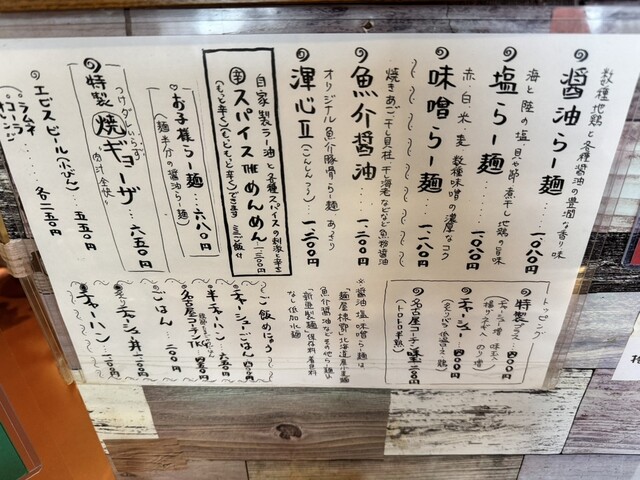 数種地鶏と各種醤油の豊潤な香り味
醤油らー麺 … 一、〇八〇円
海と陸の塩 貝や節 煮干し 地鶏の旨味
塩らー麺 … 一、〇八〇円
赤・白・米・麦 数種味噌の濃厚なコク
味噌らー麺 … 一、二八〇円
焼きあご 干し貝柱 干し海老などなど魚粉醤油
魚介醤油 … 一、二〇〇円
オリジナル魚介豚骨らー麺 あっさり
渾心Ⅱ(こんしんつう) 一、三〇〇円
自家製ラー油と各種スパイスの刺激と辛さ
辛 スパイスTHEめんめん 一、三〇〇円
(もっと辛チン)(もっともっと辛チン)できます ミニご飯付
お子様らー麺 … 六八〇円
(麺半分の醤油らー麺)
つけダレいらず
特製 焼ギョーザ … 六五〇円
肉汁
エビスビール(小びん) … 五五〇円
ラムネ
コーラ
オレンジ … 各二五〇円
トッピング
特製プラス 四〇〇円
チャーシュー … 四〇〇円
名古屋コーチン味玉
(トロトロ半熟)
※醤油 塩 味噌らー麺は
「麺屋棣鄂」北海道産小麦麺
魚介醤油などその他らー麺は
「新亜製麺」保存料 着色料
なし 低加水麺
ご飯めにゅう
チャーシューごはん 四五〇円
半チャーハン … 六五〇円
名古屋コーチンTKG
ごはん … 二〇〇円
チャーシュー丼
チャーハン